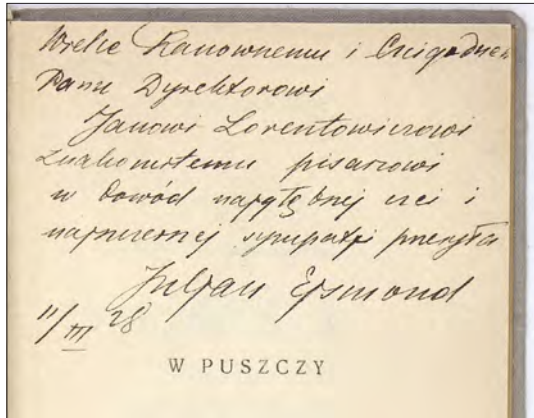 Wielce Szanownemu i Czcigodnemu
Panu Dyrektorowi
Janowi Lorentowiczowi
znakomitemu pisarzowi
w dowód najgłębszej czci i
najszczerszej sympatji przesyła
Juljan Ejsmond
11/III 28
W PUSZCZY